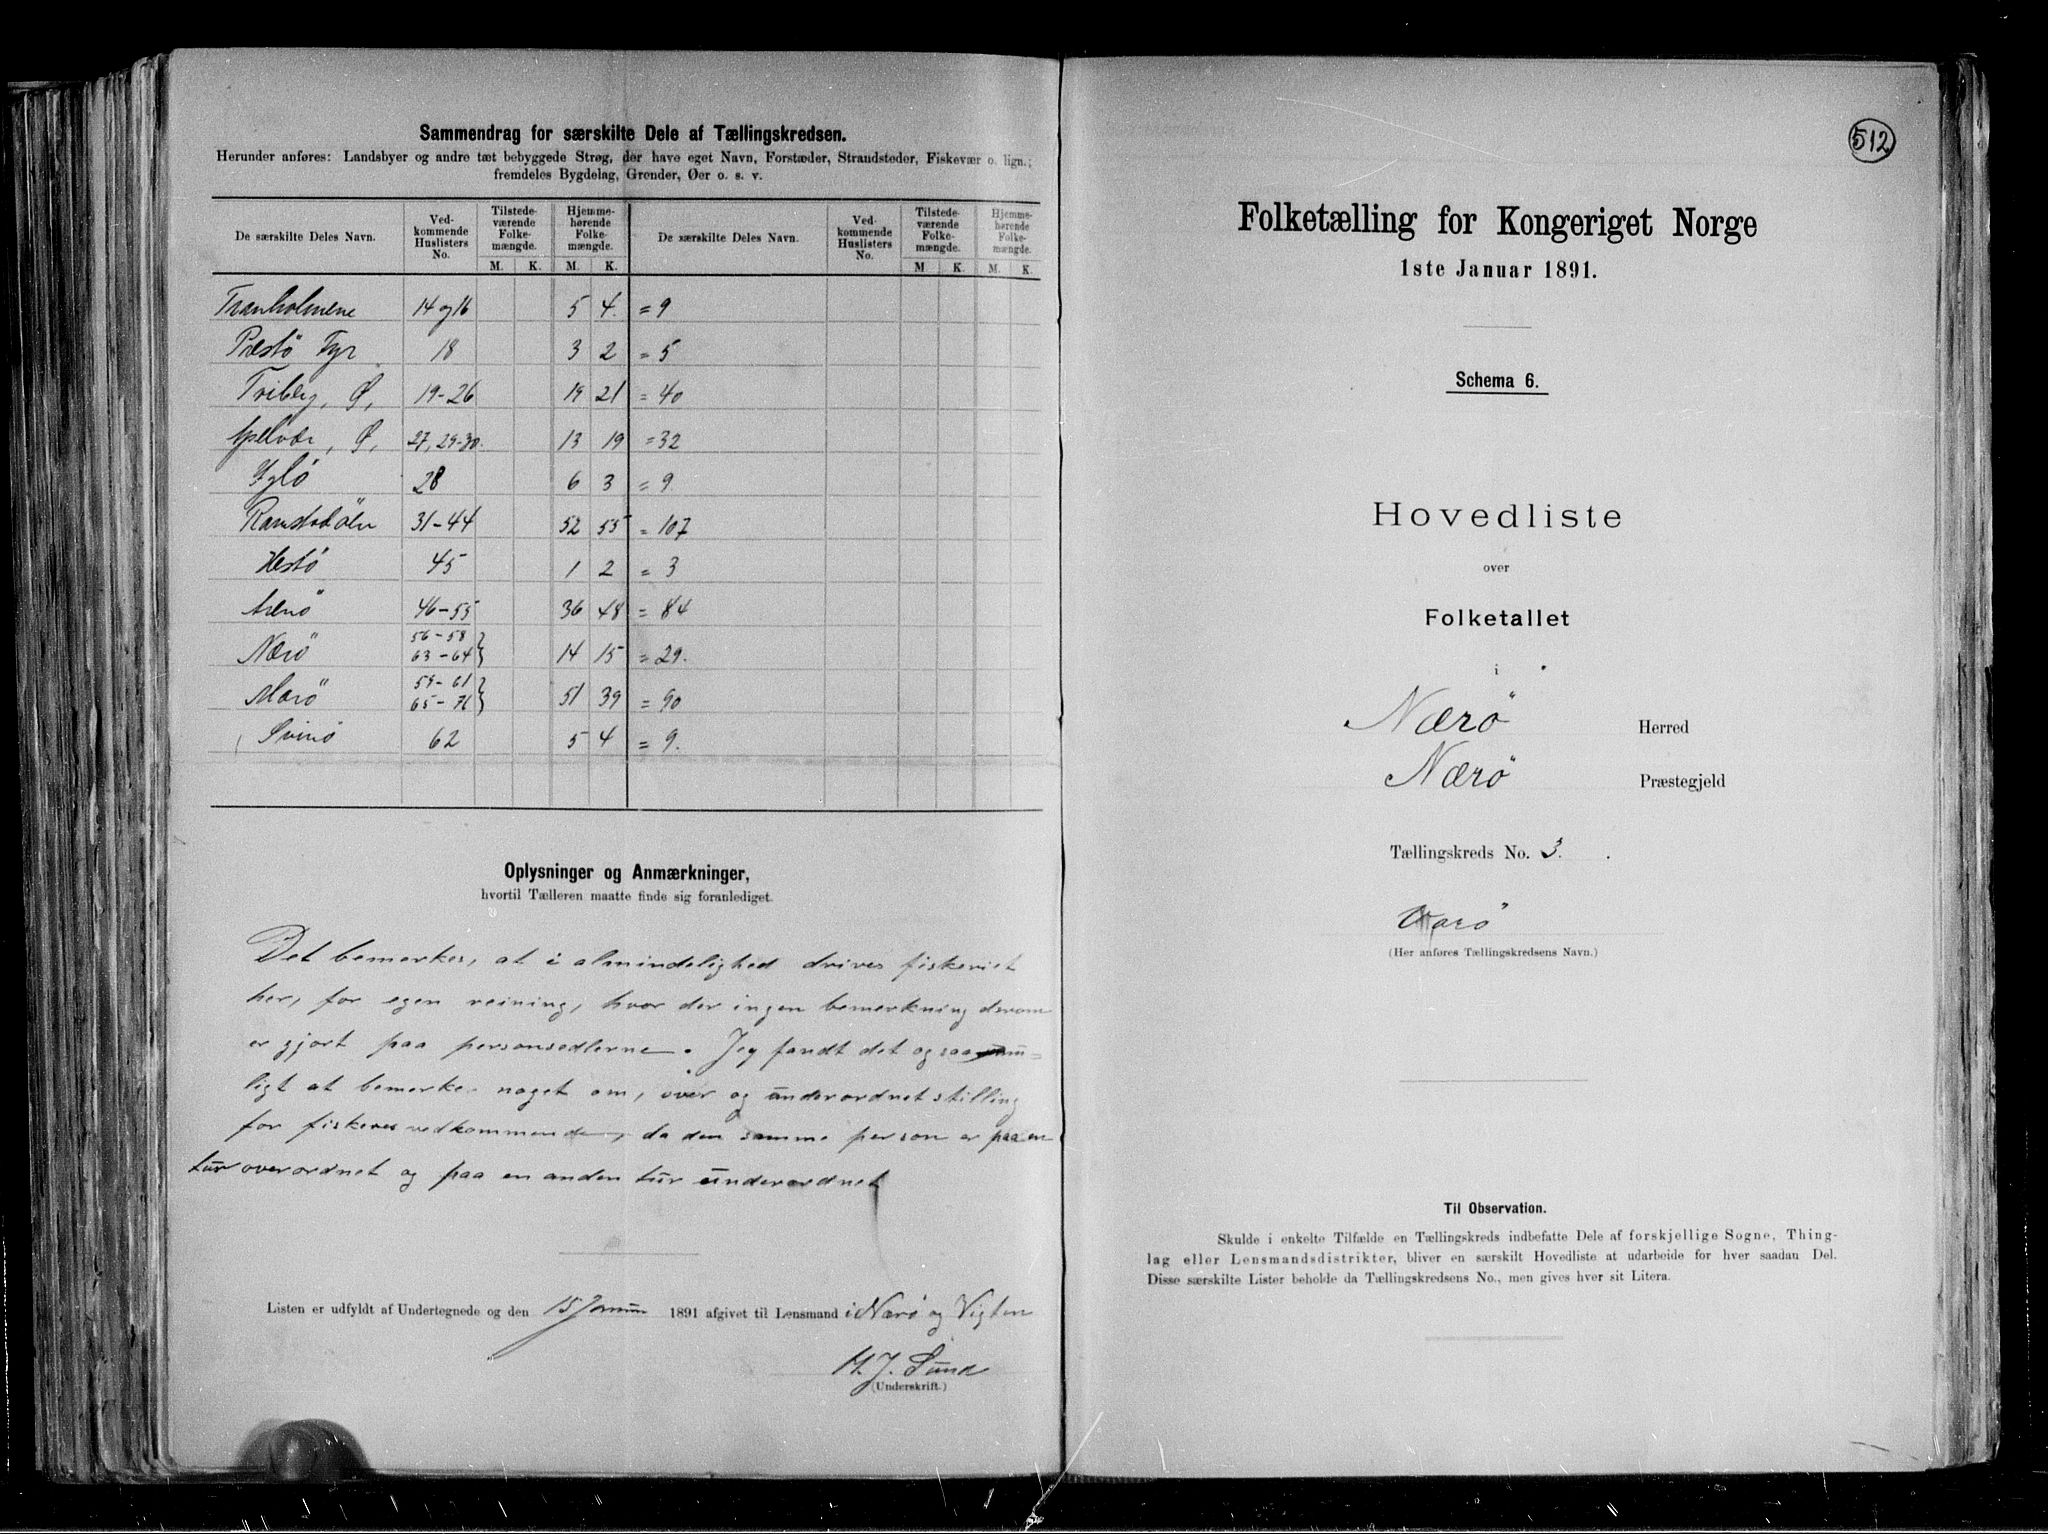 Sammendrag for særskilte Dele af Tællingskredsen.
Herunder anføres: Landsbyer og andre tæt bebyggede Strøg, der have eget Navn, Forstæder, Strandsteder, Fiskevær o. lign.;
fremdeles Bygdelag, Grender, Øer o. s. v.
De særskilte Deles Navn. Ved-kommende Huslisters No. Tilstede-værende Folke-mængde. Hjemme-hørende Folke-mængde. De særskilte Deles Navn. Ved-kommende Huslisters No. Tilstede-værende Folke-mængde. Hjemme-hørende Folke-mængde.
M. K. M. K. M K. M. K.
14 og 16 5 4. = 9
Præstö Fyr 18 3 2 = 5
19-26 19 21 = 40
Ø, 27, 29-30. 13 19 = 32
28 6 3 = 9
31-44 52 55 = 107
Hestö 45 1 2 = 3
46-55 36 48 = 84
Nærö 56-58 63-64 14 15 = 29.
Marö 59-61 65-76 51 39 = 90
Svinö 62 5 4 = 9.
Oplysninger og Anmærkninger,
hvortil Tælleren maatte finde sig foranlediget.
Det bemerkes, at i almindelighed drives fiskeriet
her, for egen reining, hvor der ingen bemerkning derom
er gjort paa personsedlerne. Jeg fandt det ogsaa umu=
ligt at bemerke noget om, over og underordnet stilling
for fiskeres vedkommende, da den samme person er paa en
tur overordnet og paa en anden tur underordnet
Listen er udfyldt af Undertegnede og den 15 Januar 1891 afgivet til Lensmand i Nærö og Vigten
H. J. Sund
(Underskrift.)
512
Folketælling for Kongeriget Norge
1ste Januar 1891.
Schema 6.
Hovedliste
over
Folketallet
i
Nærö Herred
Nærö Præstegjeld
Tællingskreds No. 3.
(Her anføres Tællingskredsens Navn.)
Til Observation.
Skulde i enkelte Tilfælde en Tællingskreds indbefatte Dele af forskjellige Sogne, Thing-
lag eller Lensmandsdistrikter, bliver en særskilt Hovedliste at udarbeide for hver saadan Del.
Disse særskilte Lister beholde da Tællingskredsens No., men gives hver sit Litera.